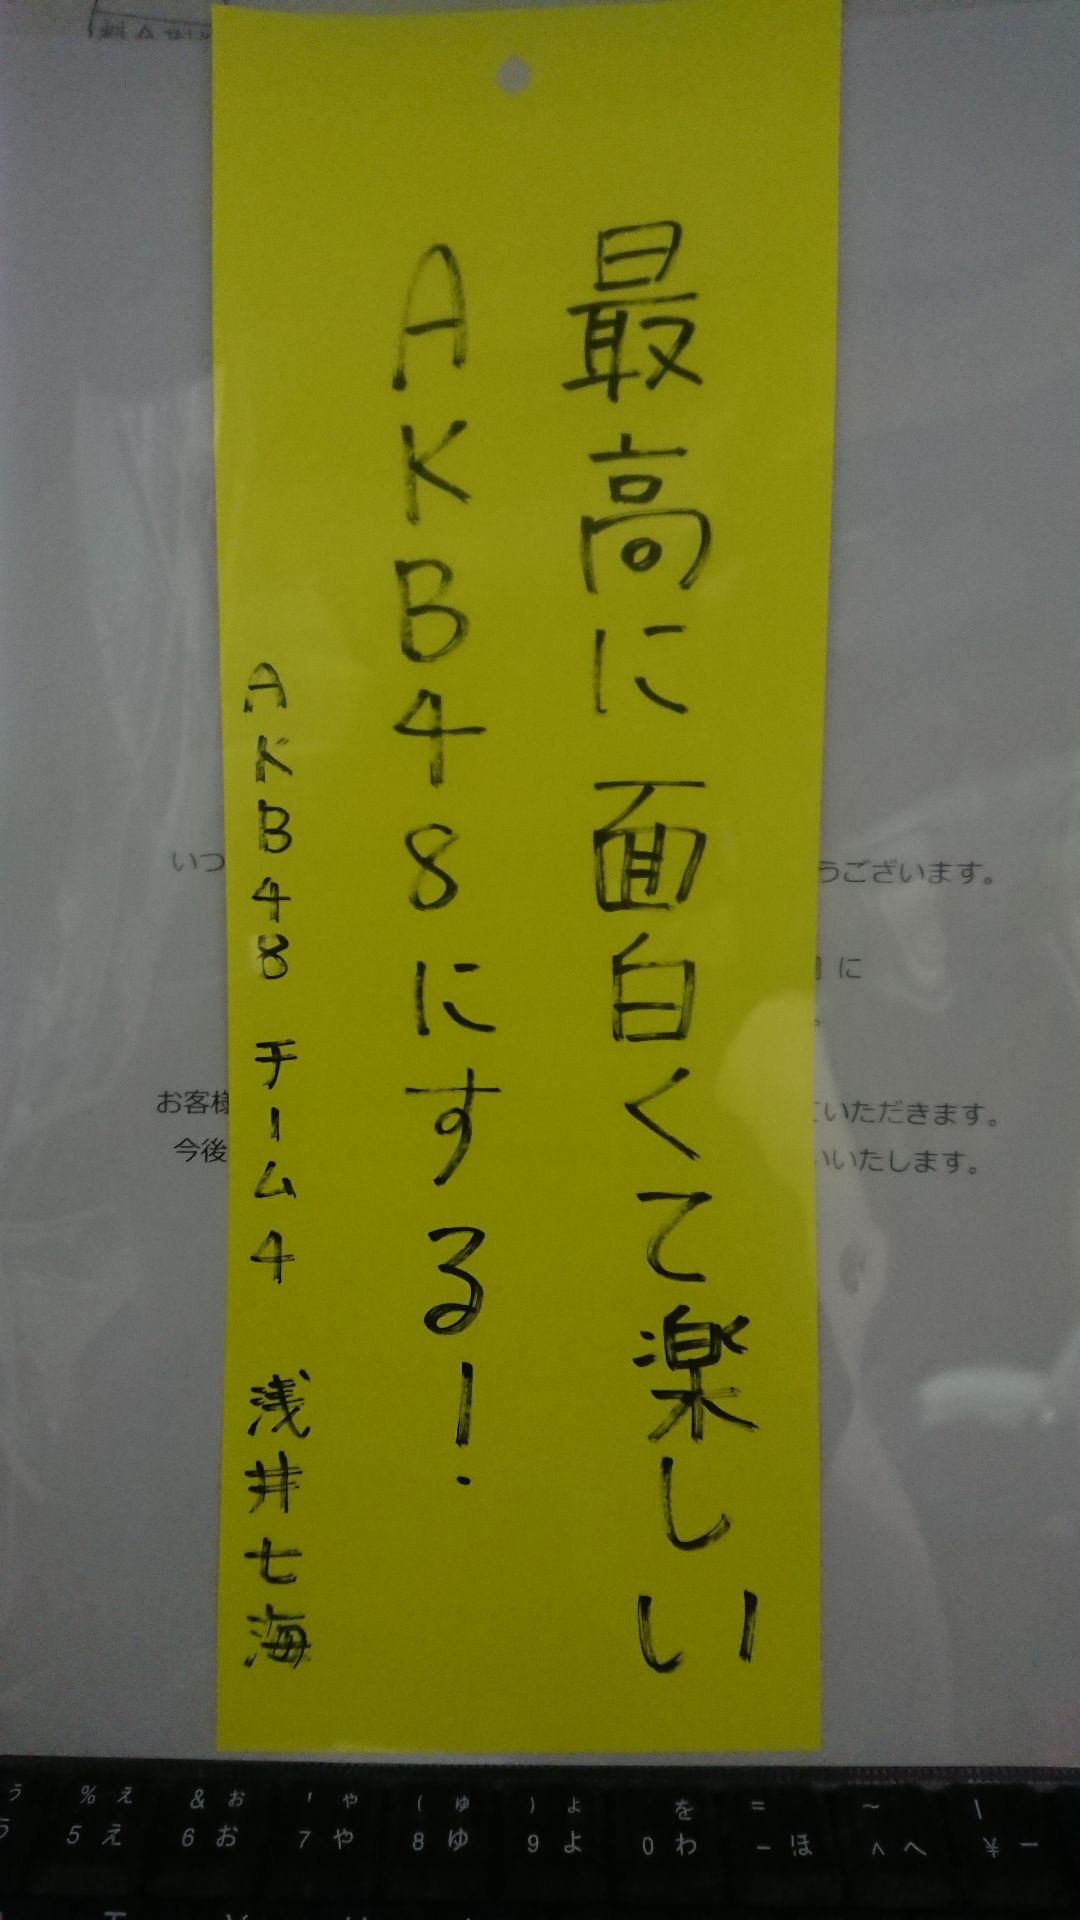 最高に面白くて楽しい
AKB48にする!
AKB48 チーム4 浅井七海
いつ
うございます。
に
お客様
ていただきます。
今後
いいたします。
% え & お ' や ( ゆ ) よ を = ~ |
5 え 6 お 7 や 8 ゆ 9 よ 0 わ - ほ ^ へ ¥ ー